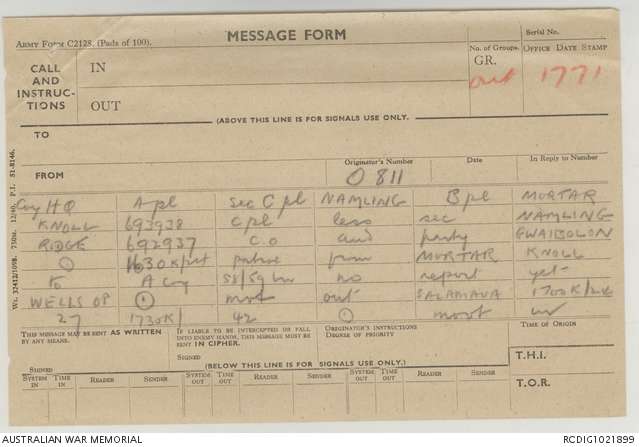 Army Form C2128. (Pads of 100).
MESSAGE FORM
Serial No.
CALL AND INSTRUC-TIONS
IN
OUT
No. of Groups.
GR.
OFFICE DATE STAMP
out 1771
(ABOVE THIS LINE IS FOR SIGNALS USE ONLY.
TO
FROM
Originator's Number
Date
In Reply to Number
O 811
Coy HQ A pl sec C pl NAMLING B pl MORTAR
KNOLL 693938 C pl less sec NAMLING
RIDGE 692937 C.O and party GWAIBOLON
patrol from MORTAR KNOLL
to A Coy 58/59 no report yet
WELLS OP out SALAMAUA
27 1730K/ 42
THIS MESSAGE MAY BE SENT AS WRITTEN BY ANY MEANS.
IF LIABLE TO BE INTERCEPTED OR FALL INTO ENEMY HANDS, THIS MESSAGE MUST BE SENT IN CIPHER.
ORIGINATOR'S INSTRUCTIONS DEGREE OF PRIORITY
TIME OF ORIGIN
SIGNED
SIGNED
(BELOW THIS LINE IS FOR SIGNALS USE ONLY.)
T.H.I.
T.O.R.
SYSTEM IN TIME IN READER SENDER SYSTEM OUT TIME OUT READER SENDER SYSTEM OUT TIME OUT READER SENDER
AUSTRALIAN WAR MEMORIAL
RCDIG1021899